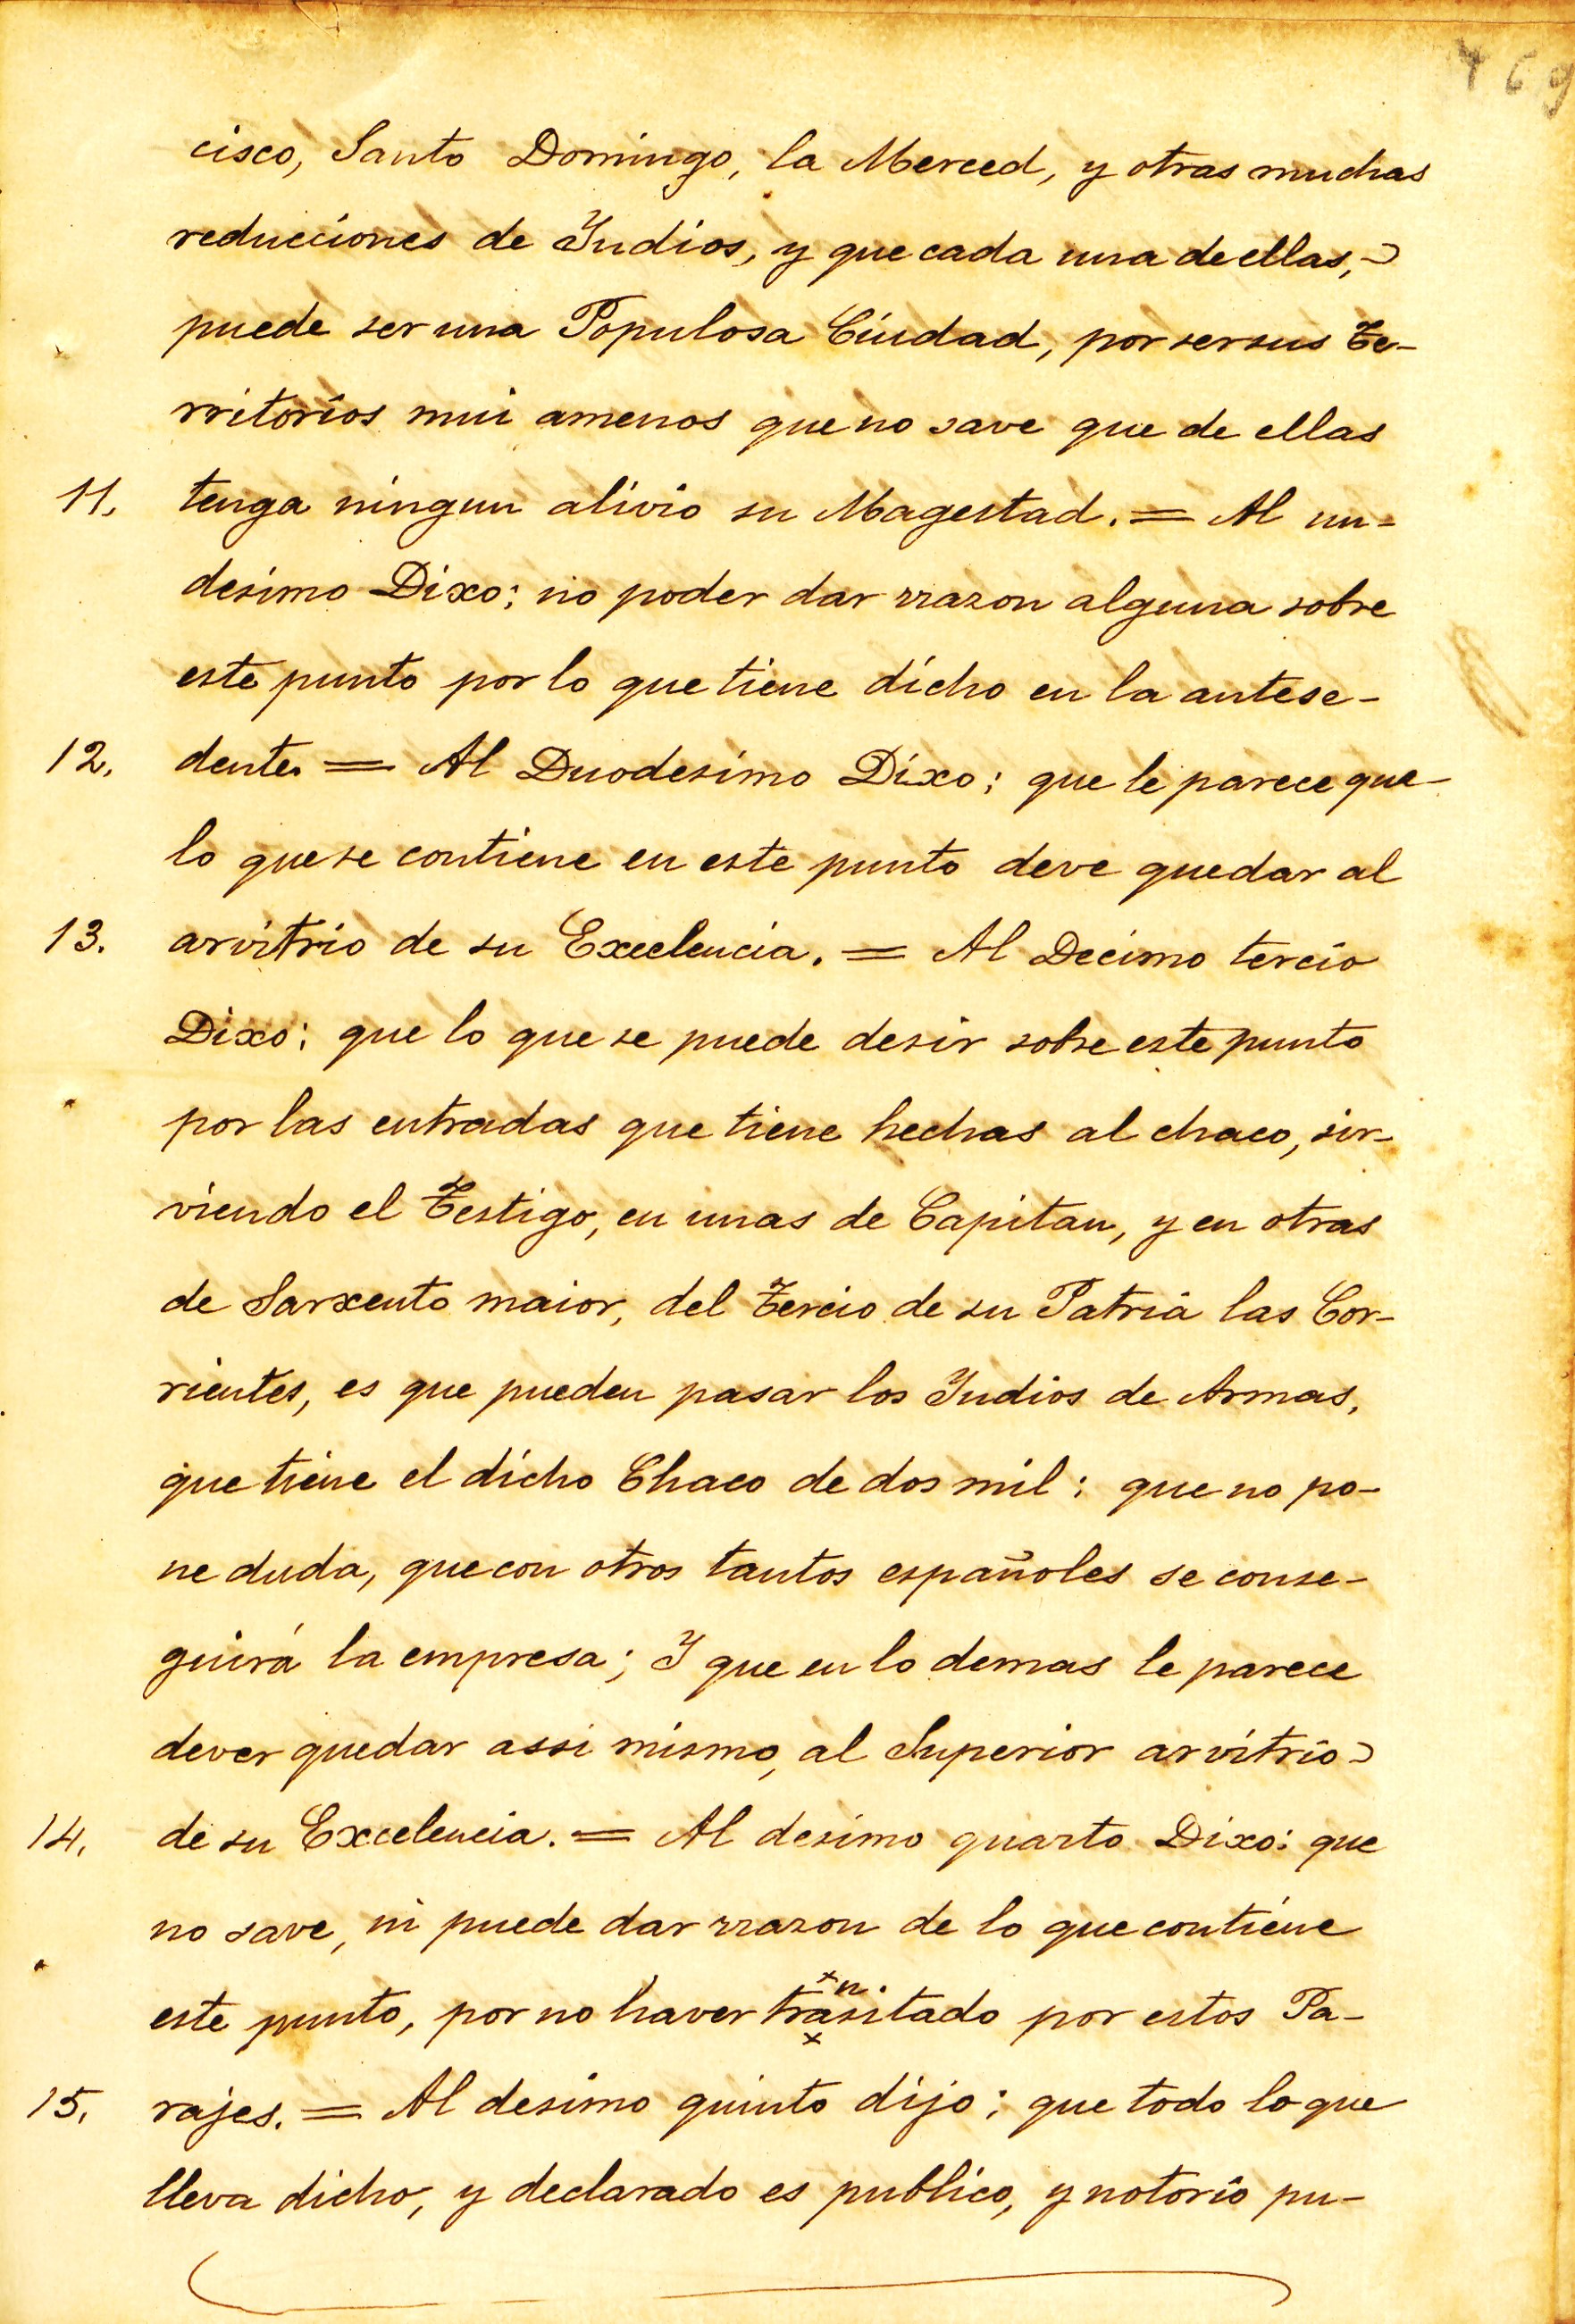 469
cisco, Santo Domingo, la Merced, y otras muchas
reducciones de Yndios, y que cada una de ellas,
puede ser una Populosa Ciudad, por ser sus Te-
rritorios mui amenos que no save que de ellas
11. tenga ningun alivio su Magestad. = Al un-
desimo Dixo: no poder dar rrazon alguna sobre
este punto por lo que tiene dicho en la antese-
12. dente. = Al Duodesimo Dixo: que le parece que
lo que se contiene en este punto deve quedar al
13. arvitrio de su Excelencia. = Al Decimo tercio
Dixo: que lo que se puede desir sobre este punto
por las entradas que tiene hechas al chaco, sir-
viendo el Testigo, en unas de Capitan, y en otras
de Sarxento maior, del Tercio de su Patria las Cor-
rientes, es que pueden pasar los Yndios de Armas,
que tiene el dicho Chaco de dos mil: que no po-
ne duda, que con otros tantos españoles se conse-
guirá la empresa; Y que en lo demas le parece
dever quedar assi mismo, al Superior arvitrio
14. de su Excelencia. = Al desimo quarto Dixo: que
no save, ni puede dar rrazon de lo que contiene
este punto, por no haver transitado por estos Pa-
15. rajes. = Al desimo quinto dijo: que todo lo que
lleva dicho, y declarado es publico, y notorio pu-